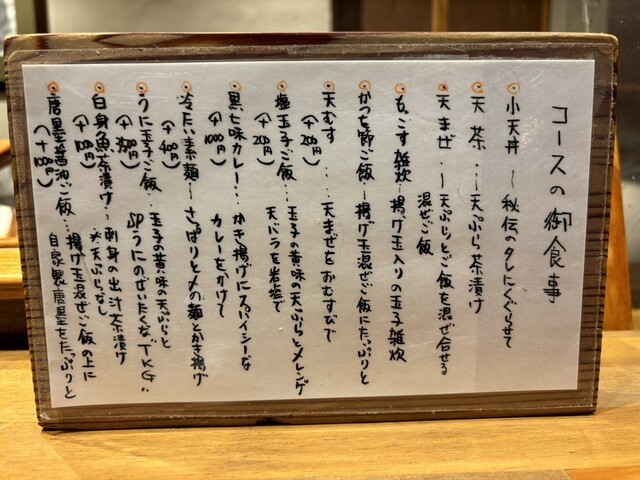 コースの御食事
小天丼 〜 秘伝のタレにくぐらせて
天茶 … 〜 天ぷら茶漬け
天まぜ 〜 天ぷらとご飯を混ぜ合せる
混ぜご飯
もっこす雑炊 〜 揚げ玉入りの玉子雑炊
かつを節ご飯 〜 揚げ玉混ぜご飯にたっぷりと
天むす … 天まぜをおむすびで
(+200円)
塩玉子ご飯 … 玉子の黄味の天ぷらとメレンゲ
(+200円) 天バラを岩塩で
黒七味カレー … かき揚げにスパイシーな
(+1000円) カレーをかけて
冷たい素麺 〜 さっぱりと〆の麺とかき揚げ
(+400円)
うに玉子ご飯 … 玉子の黄味の天ぷらと
SPうにのぜいたくな"TKG"
白身魚茶漬け … 刺身の出汁茶漬け
(+100円) ※天ぷらなし
唐墨醤油ご飯 … 揚げ玉混ぜご飯の上に
自家製唐墨をたっぷりと